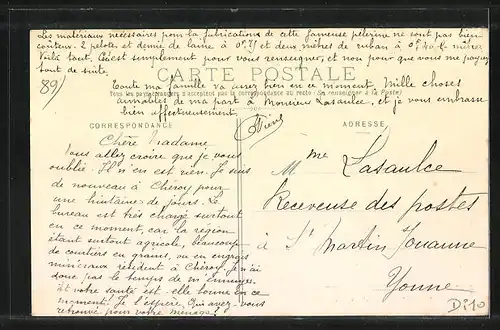 Les matériaux nécessaires pour la fabrication de cette fameuse pèlerine ne sont pas bien
coûteux. 2 pelotes et demie de laine à 0f,75 et deux mètres de ruban à 0f,40 le mètre
Voilà tout. C'est simplement pour vous renseigner, et non pour que vous me payiez
tout de suite.
CARTE POSTALE
89)
Toute ma famille va assez bien en ce moment. Mille choses
Tous les pays étrangers n'acceptent pas la correspondance au recto (Se renseigner à la Poste)
aimables de ma part à Monsieur Lasaulce, et je vous embrasse
bien affectueusement.
CORRESPONDANCE
ADRESSE
Chère Madame
Vous allez croire que je vous
oublie. Il n'en est rien. Je suis
de nouveau à Chéroy pour
une huitaine de jours. Le
bureau est très chargé surtout
en ce moment, car la région
étant surtout agricole, beaucoup
de courtiers en grains, ou en engrais
minéraux résident à Chéroy. Je n'ai
donc pas le temps de m'ennuyer.
Et votre santé est-elle bonne en ce
moment? Je l'espère. Avez-vous
retrouvé pour votre ménage?
Mme Lasaulce
Receveuse des postes
à St Martin
Yonne
D210